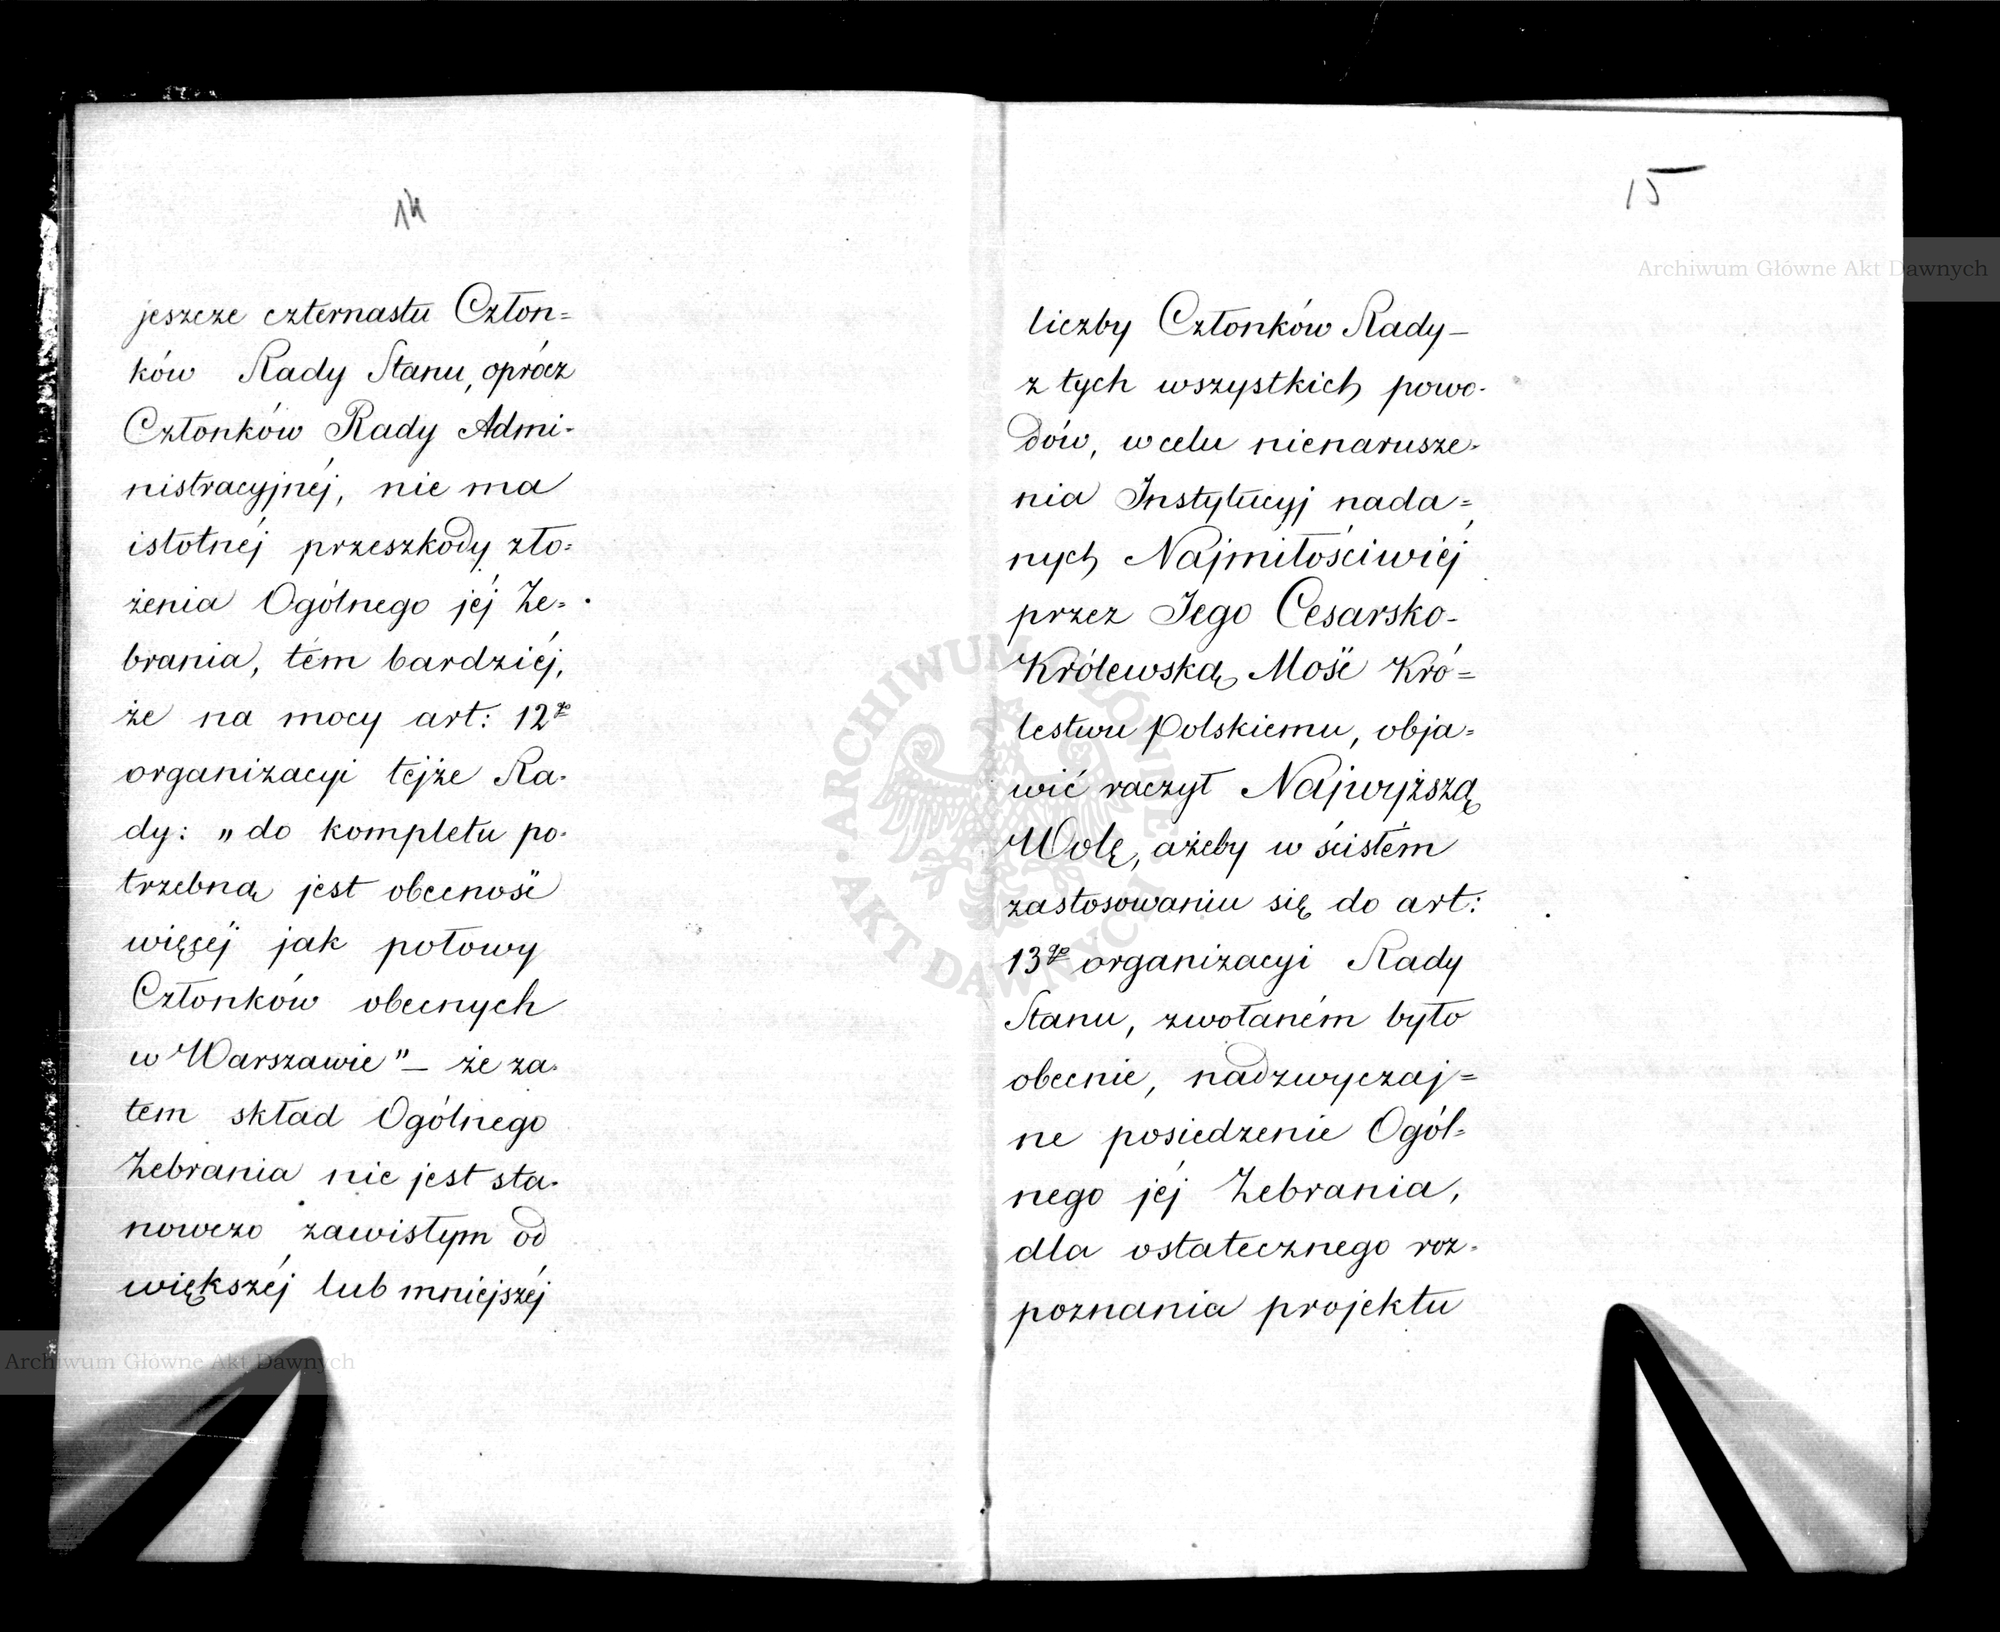 14
jeszcze czternastu Człon=
ków Rady Stanu, oprócz
Członków Rady Admi-
nistracyjnéj, nie ma
istotnéj przeszkody zło=
żenia Ogólnego jéj Ze=
brania, tém bardziéj,
że na mocy art: 12go
organizacyi tejże Ra-
dy: „do kompletu po-
trzebną jest obecność
więcéj jak połowy
Członków obecnych
w Warszawie" — że za-
tem skład Ogólnego
Zebrania nie jest sta-
nowczo zawisłym od
większéj lub mniejszéj
15
liczby Członków Rady —
z tych wszystkich powo-
dów, w celu nienarusze-
nia Instytucyj nada=
nych Najmiłościwiéj
przez Jego Cesarsko-
Królewską Mość Kró=
lestwu Polskiemu, obja=
wić raczył Najwyższą
Wolę, ażeby w ścisłém
zastosowaniu się do art:
13go organizacyi Rady
Stanu, zwołaném było
obecnie, nadzwyczaj=
ne posiedzenie Ogól=
nego jéj Zebrania,
dla ostatecznego roz-
poznania projektu
Archiwum Główne Akt Dawnych
Archiwum Główne Akt Dawnych
ARCHIWUM GŁÓWNE AKT DAWNYCH